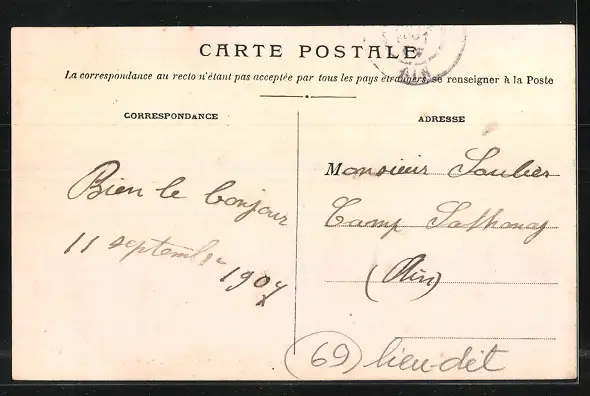 CARTE POSTALE
La correspondance au recto n'étant pas acceptée par tous les pays étrangers, se renseigner à la Poste
CORRESPONDANCE
Bien le bonjour
11 septembre
1907
ADRESSE
Monsieur
Camp Sathonay
(Ain)
(69) lieu-dit
AIN